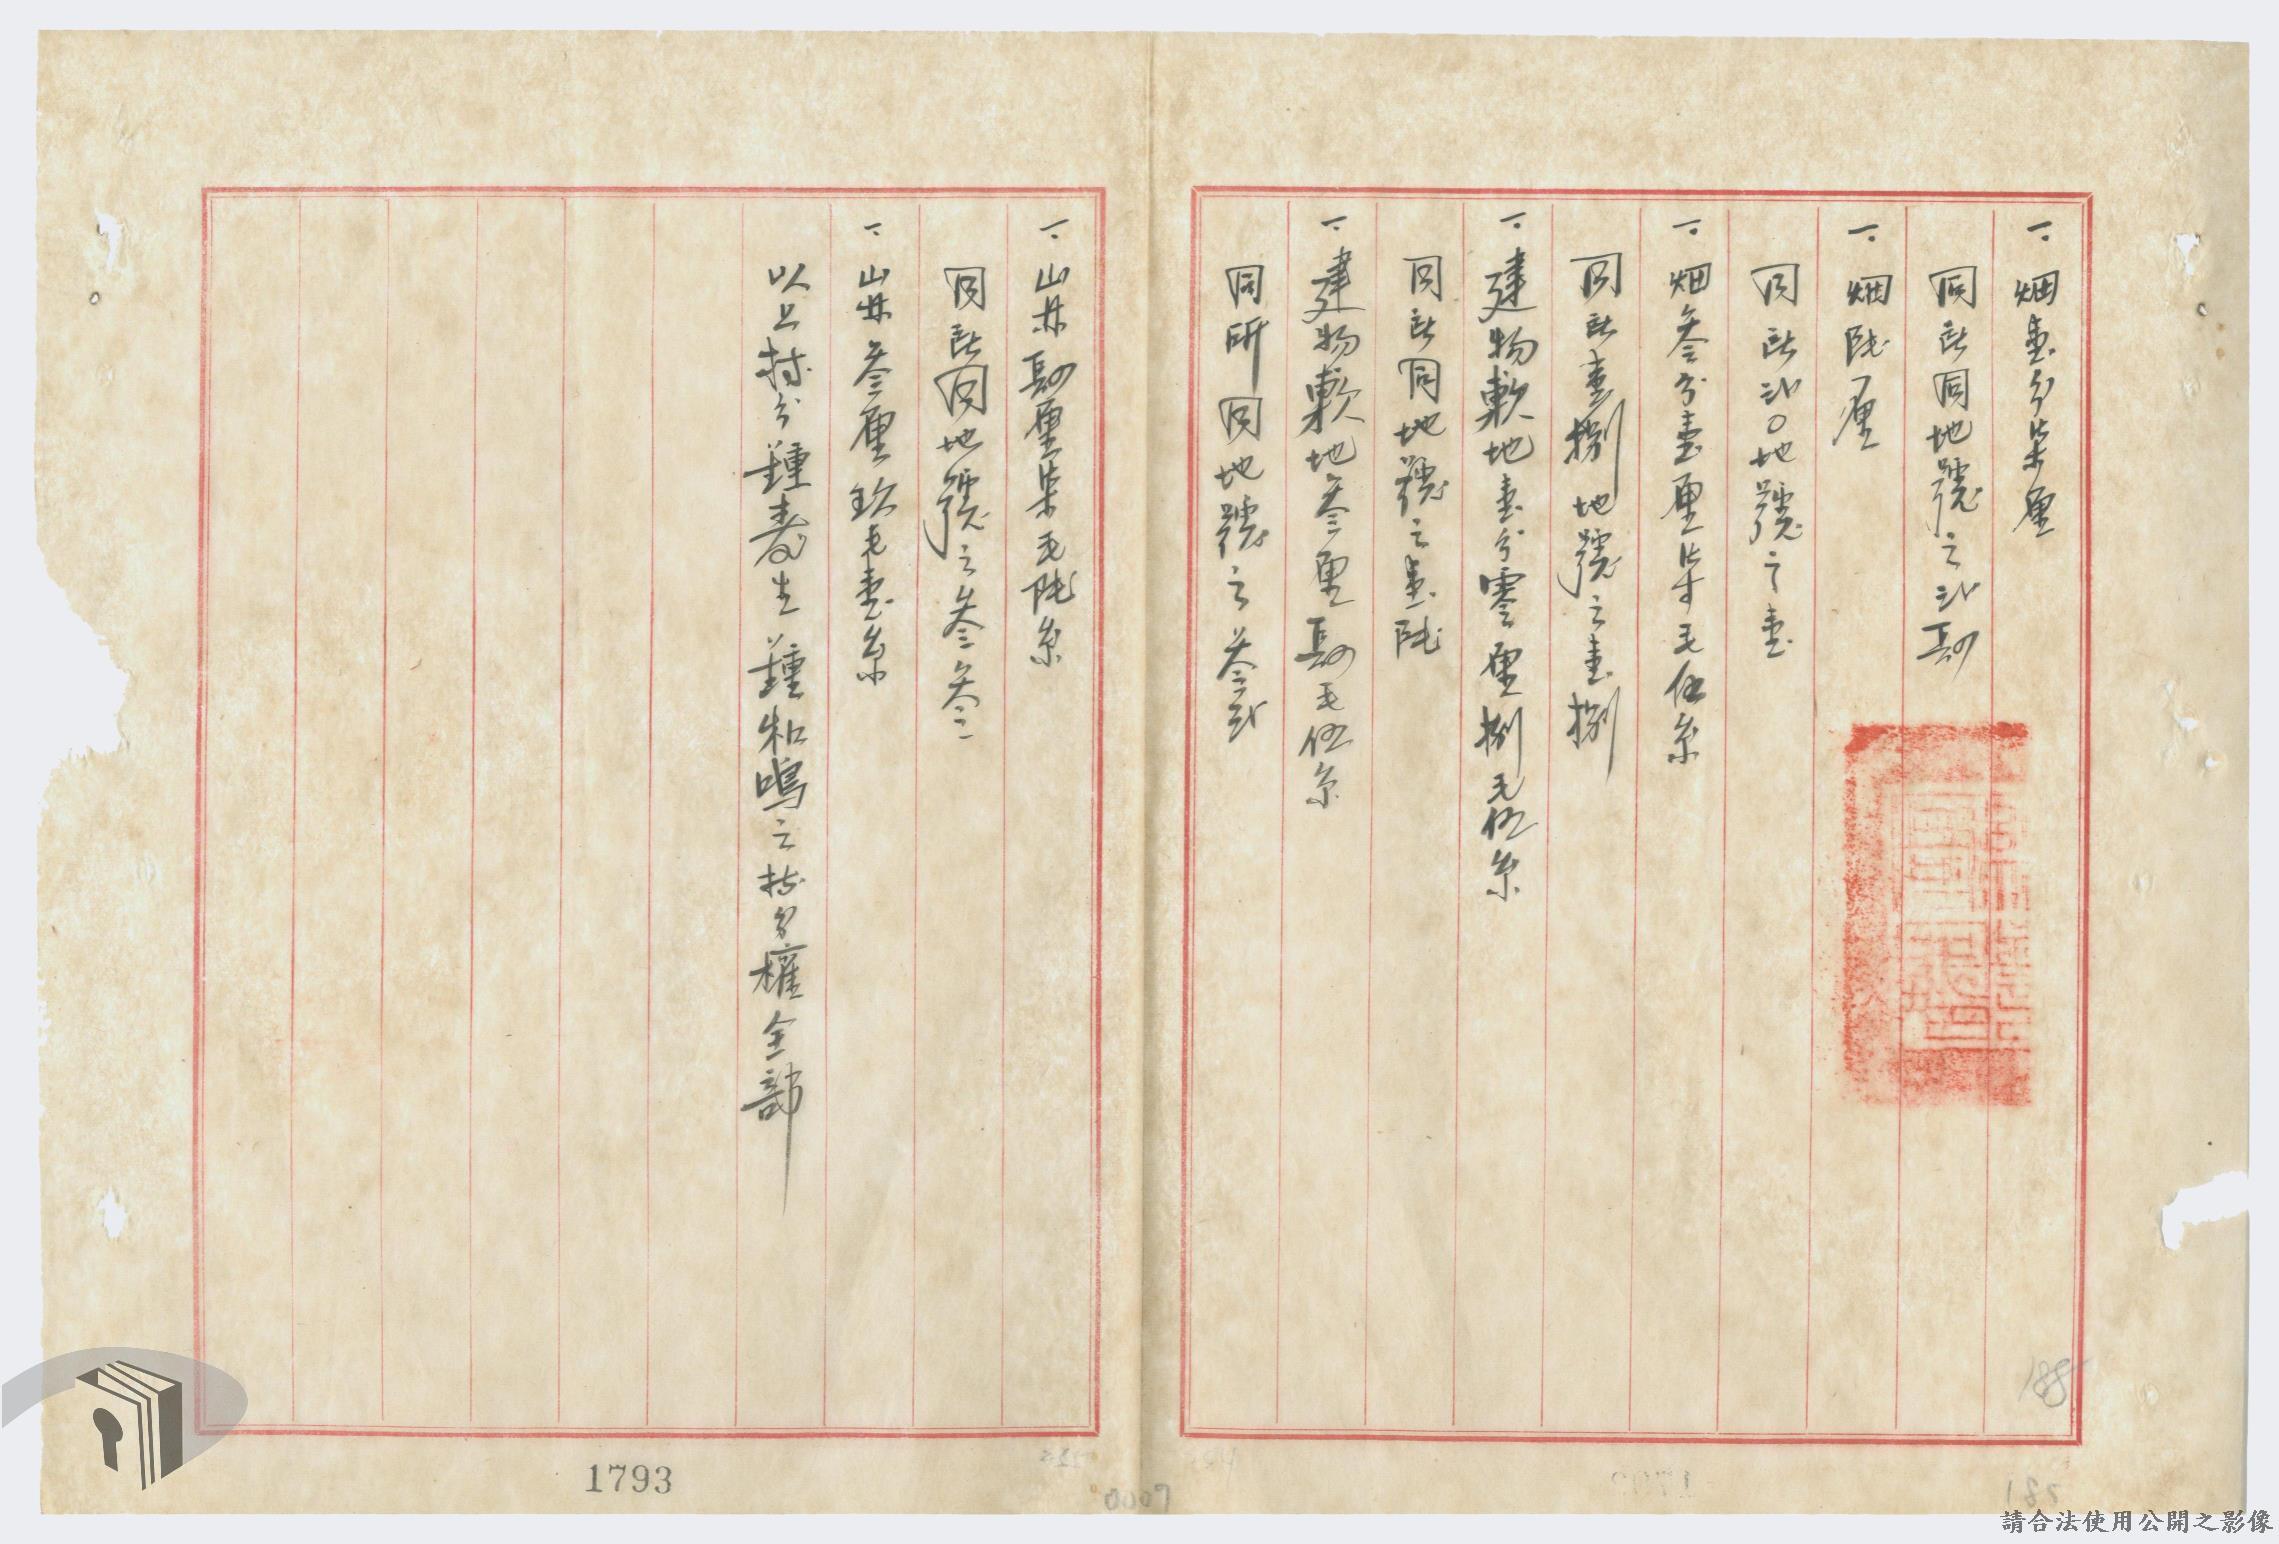 一、畑壹分柒厘
同所同地號之弍肆
一、畑陸厘
同所弍〇地號之壹
一、畑叁分壹厘柒毛伍糸
同所壹捌地號之壹捌
一、建物敷地壹分零厘捌毛伍糸
同所同地號之壹陸
一、建物敷地叁厘肆毛伍糸
同所同地號之叁弍
一、山林肆厘柒毛陸糸
同所同地號之叁叁
一、山林叁厘玖毛壹糸
以上持分鍾壽生鍾和鳴之持分權全部
188
1793
請合法使用公開之影像